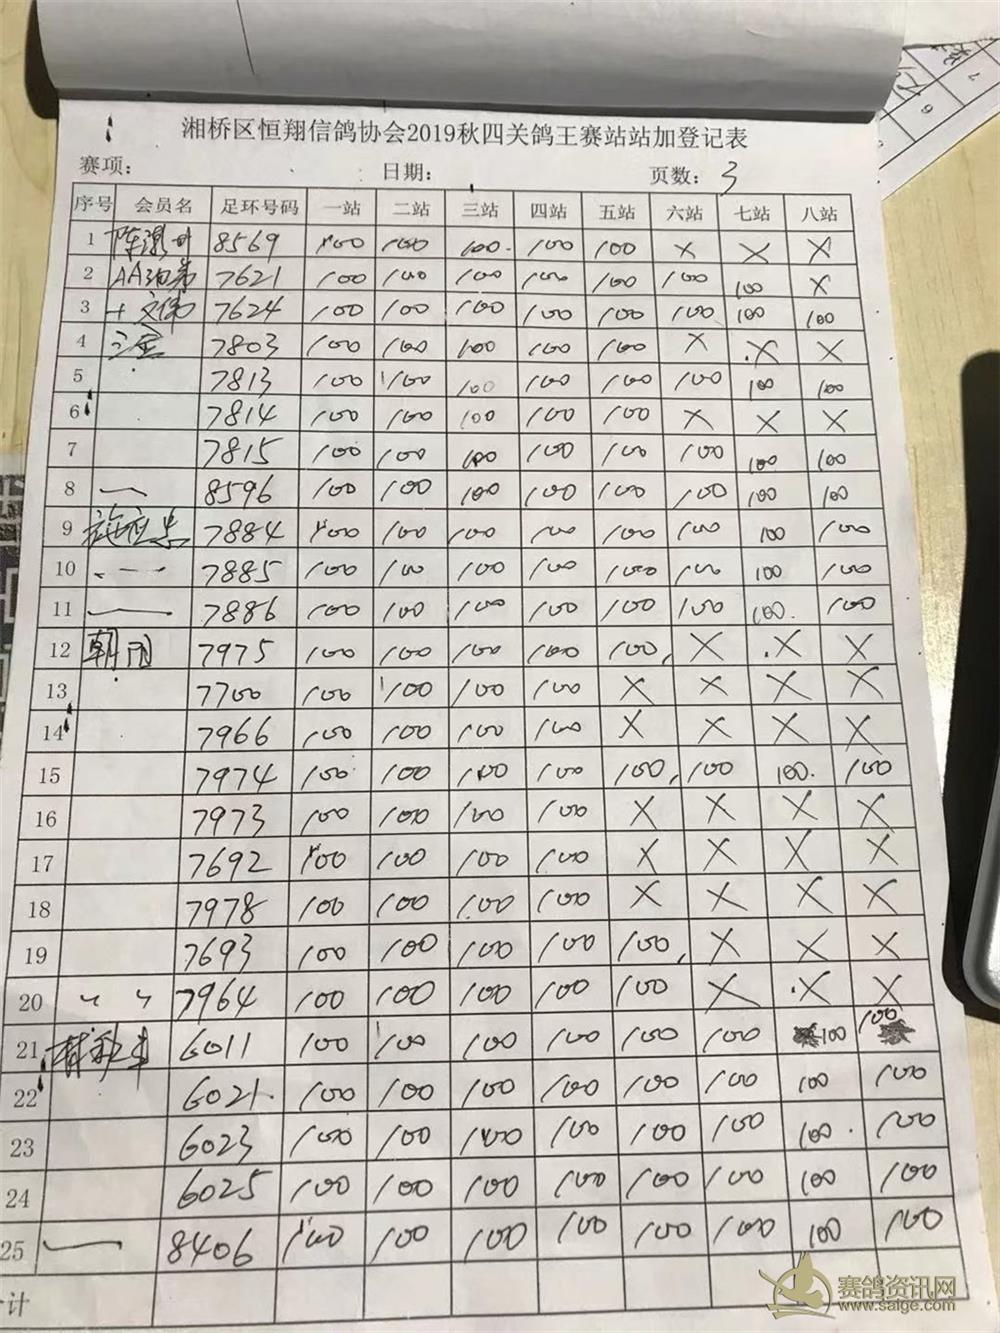 湘桥区恒翔信鸽协会2019秋四关鸽王赛站站加登记表
赛项: 日期: 页数: 3
序号 会员名 足环号码 一站 二站 三站 四站 五站 六站 七站 八站
1 8569 100 100 100 100 100 X X X
2 7621 100 100 100 100 100 100 100 X
3 7624 100 100 100 100 100 100 100 100
4 7803 100 100 100 100 100 X X X
5 7813 100 100 100 100 100 100 100 100
6 7814 100 100 100 100 100 X X X
7 7815 100 100 100 100 100 100 100 100
8 8596 100 100 100 100 100 100 100 100
9 7884 100 100 100 100 100 100 100 100
10 7885 100 100 100 100 100 100 100 100
11 7886 100 100 100 100 100 100 100 100
12 7975 100 100 100 100 100 X X X
13 7700 100 100 100 100 X X X X
14 7966 100 100 100 100 X X X X
15 7974 100 100 100 100 100 100 100 100
16 7973 100 100 100 100 X X X X
17 7692 100 100 100 100 X X X X
18 7978 100 100 100 100 X X X X
19 7693 100 100 100 100 100 X X X
20 7964 100 100 100 100 100 X X X
21 6011 100 100 100 100 100 100 100 100
22 6021 100 100 100 100 100 100 100 100
23 6023 100 100 100 100 100 100 100 100
24 6025 100 100 100 100 100 100 100 100
25 8406 100 100 100 100 100 100 100 100
计
赛鸽资讯网
www.saige.com